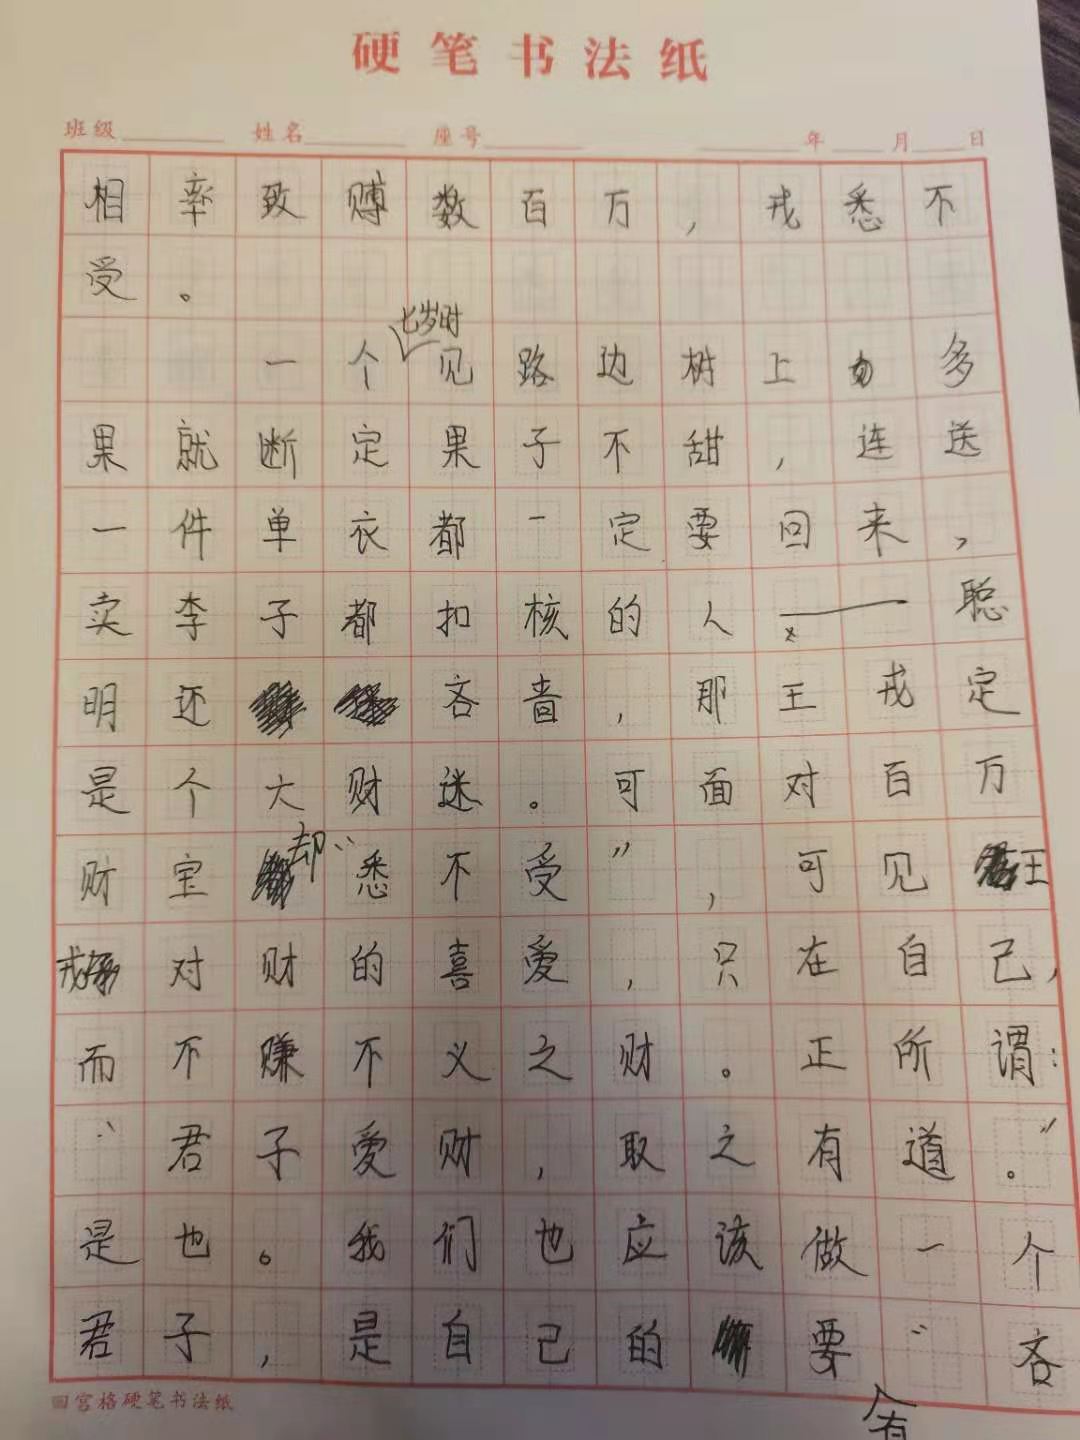 硬笔书法纸
班级 姓名 座号 年 月 日
相率致赙数百万，戎悉不
受。
七岁时
一个见路边树上多
果就断定果子不甜，连送
一件单衣都一定要回来，
卖李子都扣核的人——聪
明还吝啬，那王戎定
是个大财迷。可面对百万
财宝却“悉不受”，可见王
戎对财的喜爱，只在自己，
而不赚不义之财。正所谓：
“君子爱财，取之有道。”
是也。我们也应该做一个
君子，是自己的要“吝
回宫格硬笔书法纸